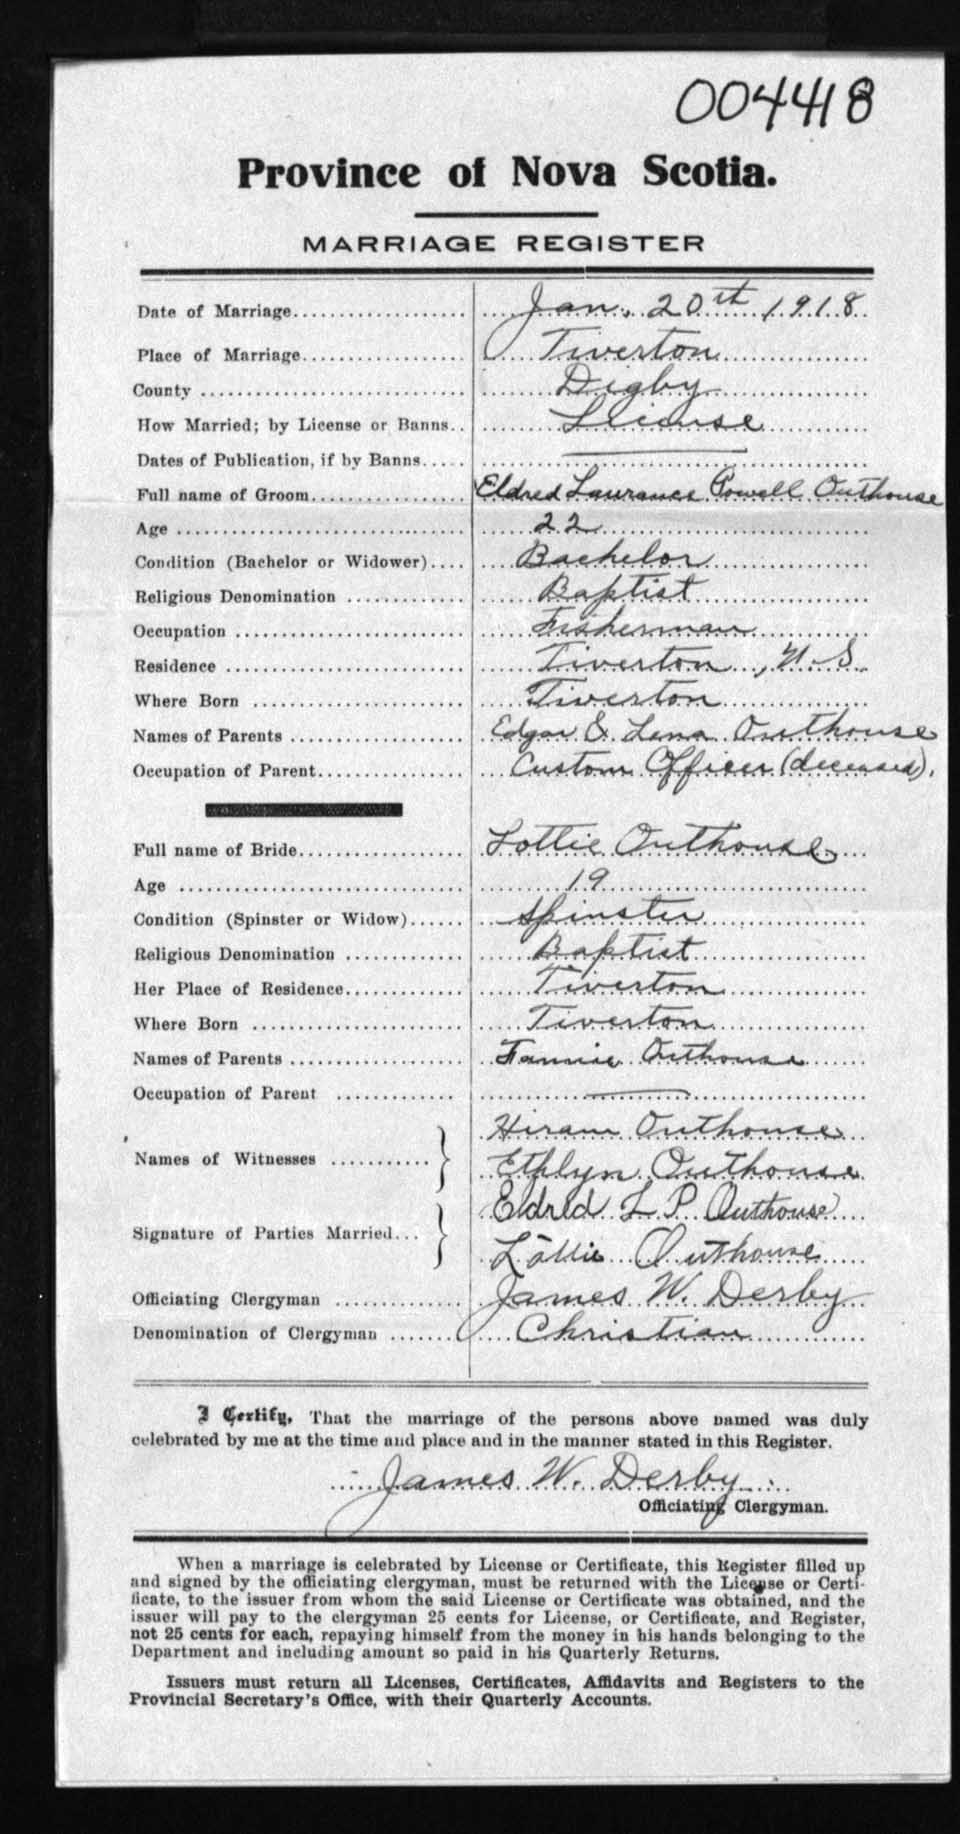 004418
Province of Nova Scotia.
MARRIAGE REGISTER
Date of Marriage Jan. 20th 1918
Place of Marriage Tiverton
County Digby
How Married; by License or Banns License
Dates of Publication, if by Banns
Full name of Groom Eldred Laurance Powell Outhouse
Age 22
Condition (Bachelor or Widower) Bachelor
Religious Denomination Baptist
Occupation Fisherman
Residence Tiverton, N.S.
Where Born Tiverton
Names of Parents Edgar & Lena Outhouse
Occupation of Parent Custom Officer (deceased).
Full name of Bride Lottie Outhouse
Age 19
Condition (Spinster or Widow) Spinster
Religious Denomination Baptist
Her Place of Residence Tiverton
Where Born Tiverton
Names of Parents Fannie Outhouse
Occupation of Parent
Hiram Outhouse
Names of Witnesses
Ethlyn Outhouse
Eldred L P Outhouse
Signature of Parties Married
Lottie Outhouse
Officiating Clergyman James W. Derby
Denomination of Clergyman Christian
I Certify, That the marriage of the persons above named was duly
celebrated by me at the time and place and in the manner stated in this Register.
James W. Derby
Officiating Clergyman.
When a marriage is celebrated by License or Certificate, this Register filled up
and signed by the officiating clergyman, must be returned with the License or Certi-
ficate, to the issuer from whom the said License or Certificate was obtained, and the
issuer will pay to the clergyman 25 cents for License, or Certificate, and Register,
not 25 cents for each, repaying himself from the money in his hands belonging to the
Department and including amount so paid in his Quarterly Returns.
Issuers must return all Licenses, Certificates, Affidavits and Registers to the
Provincial Secretary's Office, with their Quarterly Accounts.